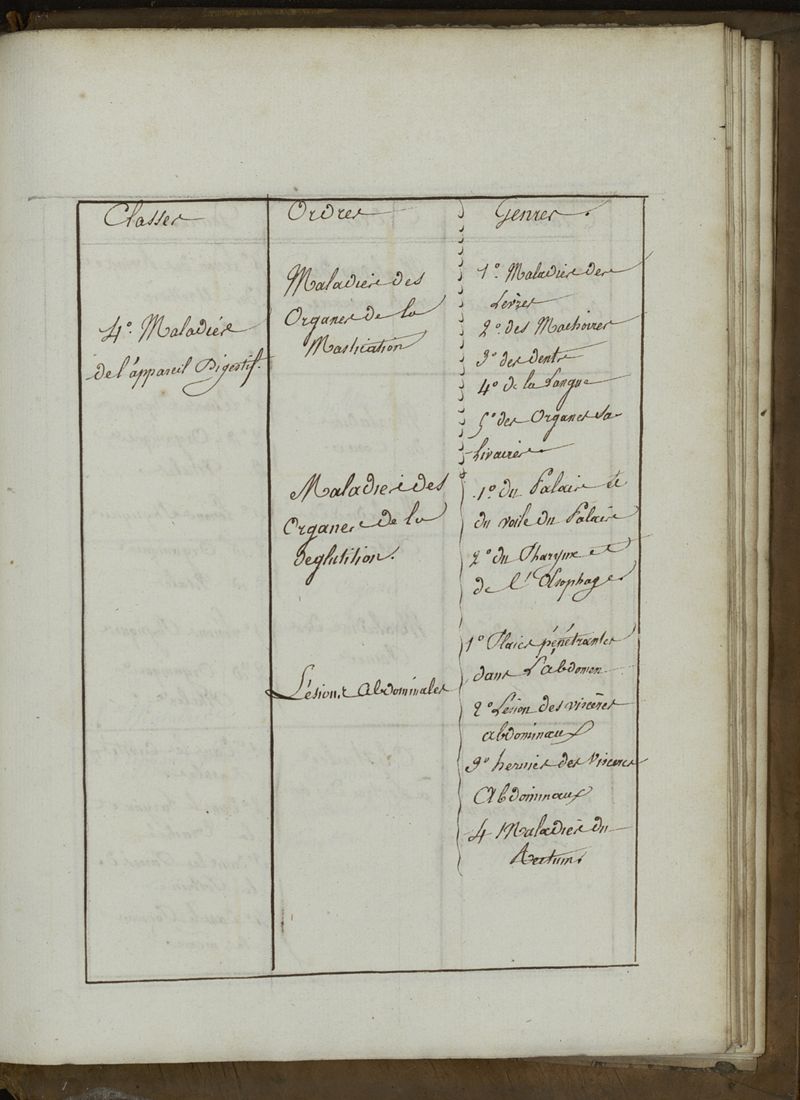 Classes
Ordres
Genres.
4º. Maladies
de l'appareil Digestif.
Maladies des
Organes de la
Mastication
1º. Maladies des
Levres
2º. des Machoires
3º des dents
4º de la Langue
5º des Organes Sa-
livaires
Maladies des
Organes de la
deglutition.
1º du Palais et
du voile du Palais
2º du Pharynx et
de L'Œsophage
Lésions Abdominales
1º Plaies pénétrantes
dans L'abdomen
2º Lésion des viscères
abdominaux
3º hernies des Viscères
Abdominaux
4 Maladies du
Rectum.